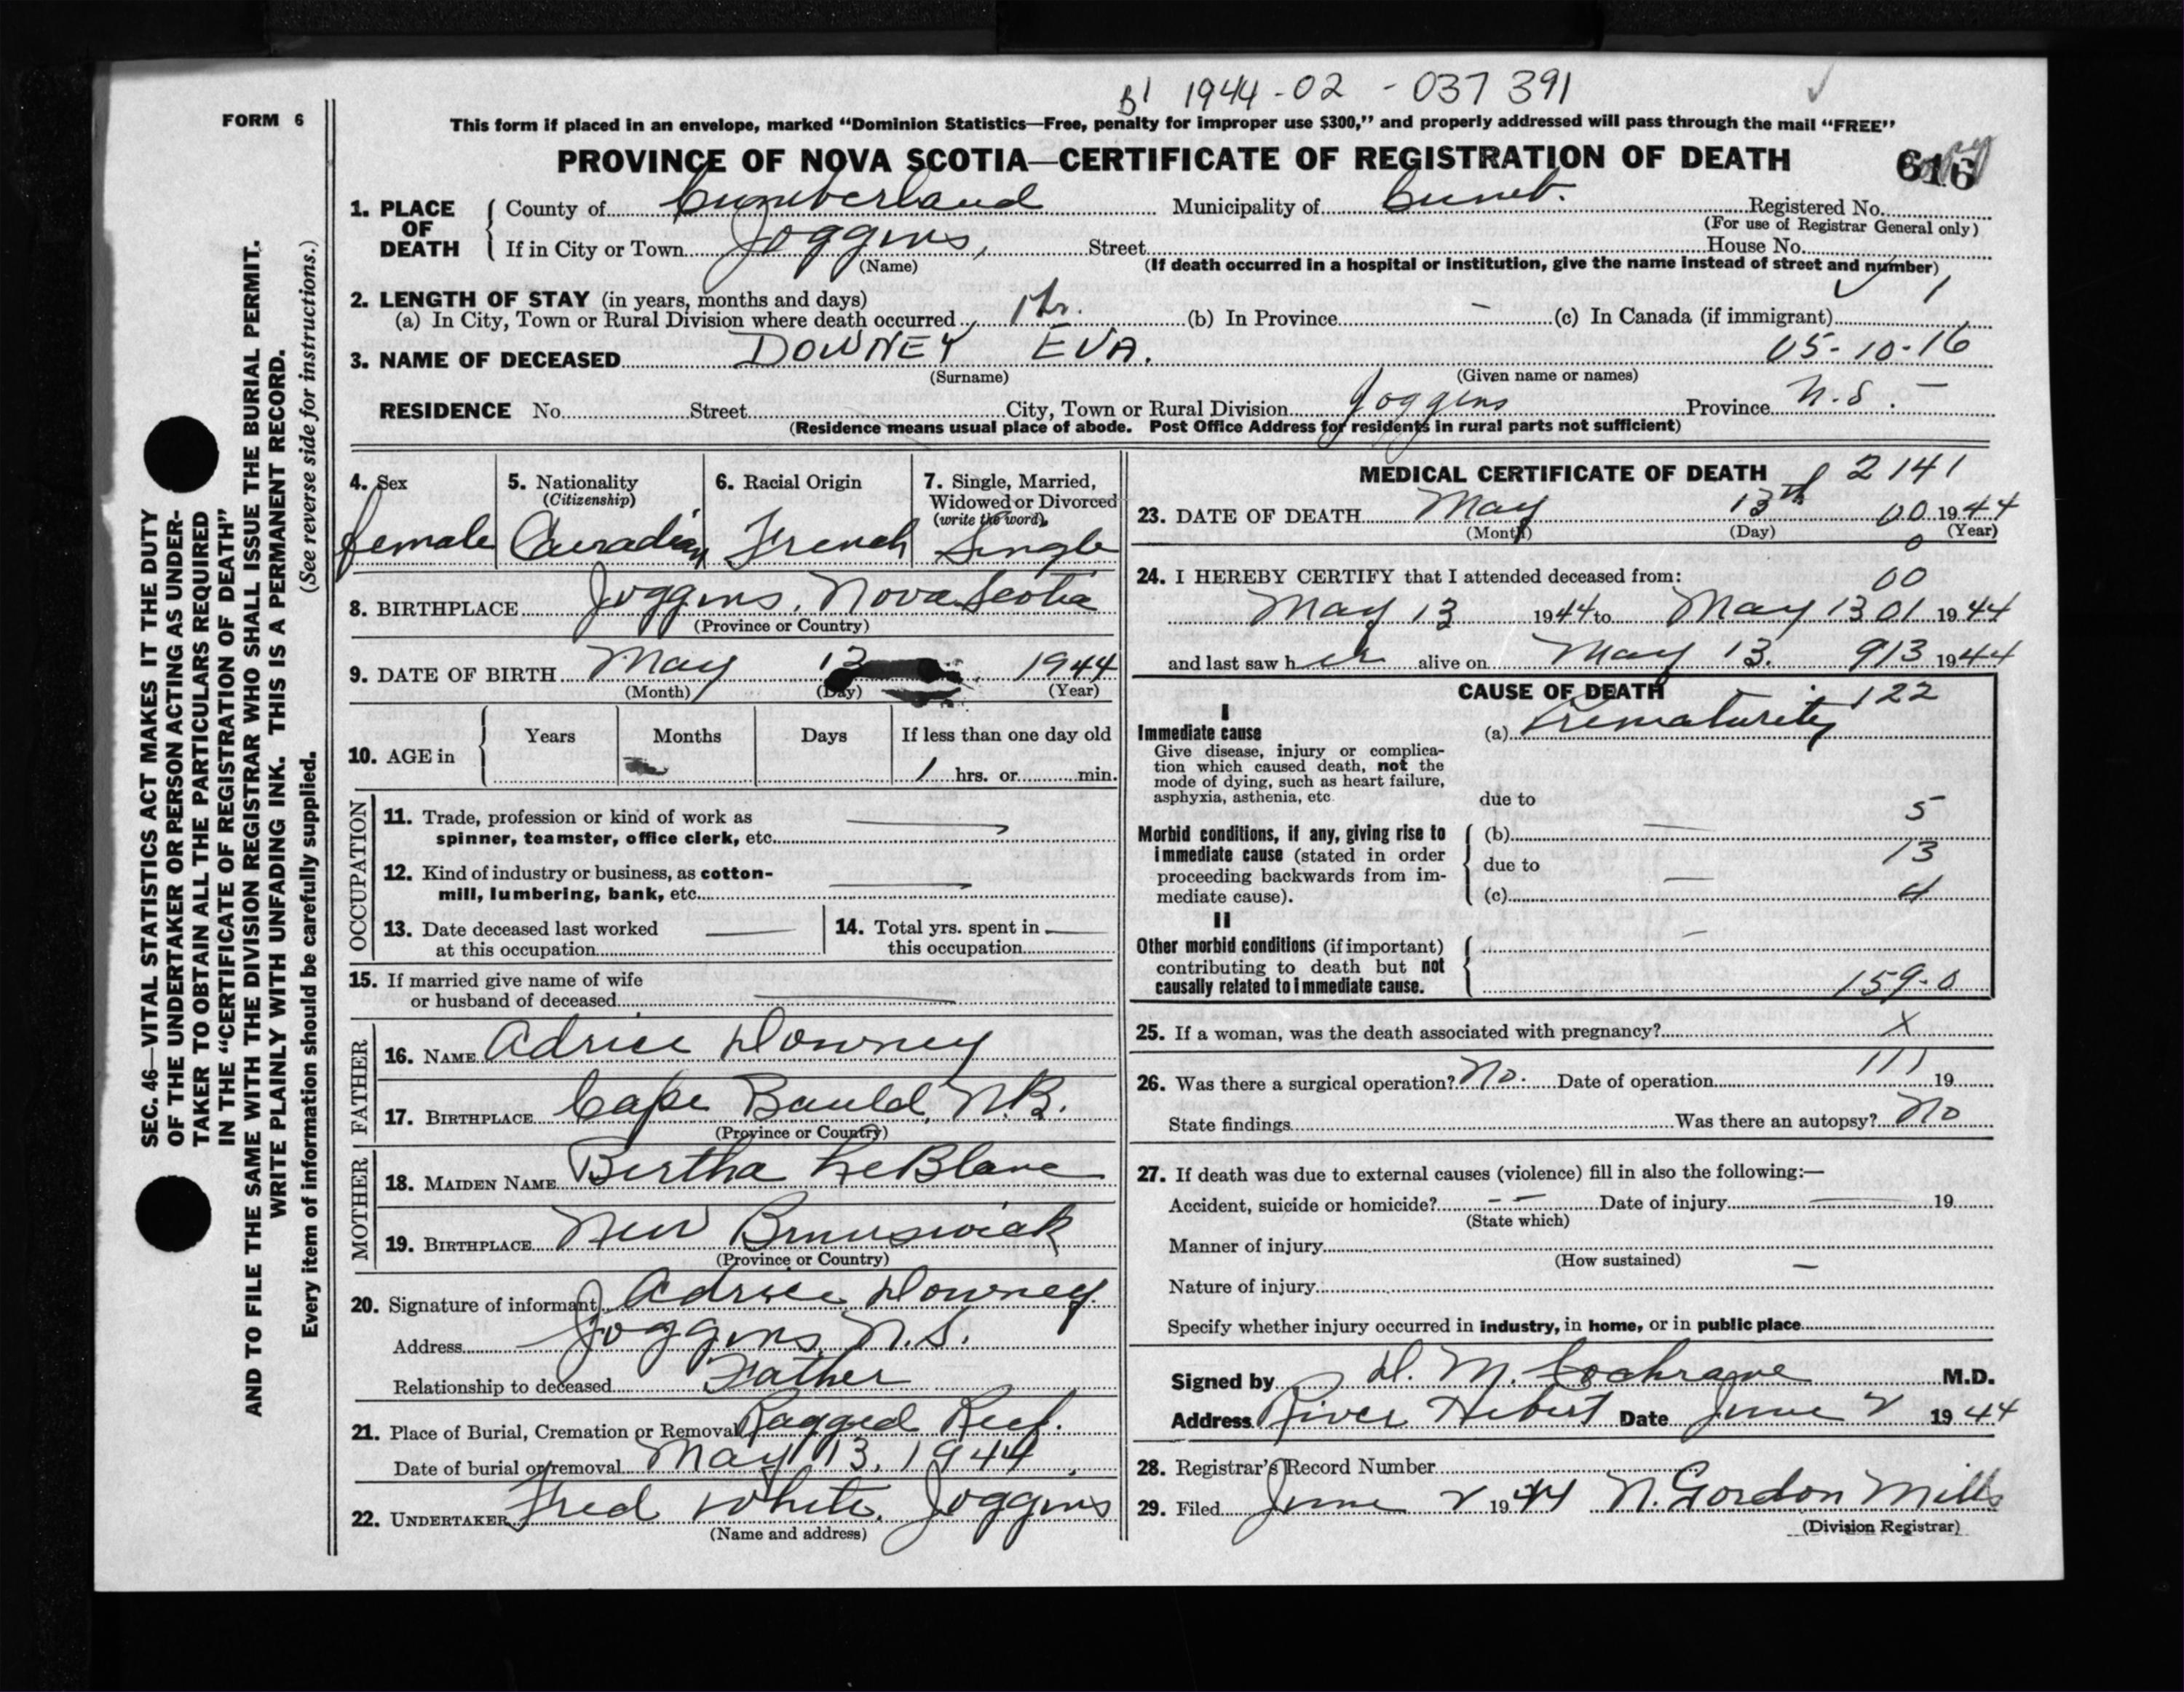 B1 1944-02-037391
FORM 6
This form if placed in an envelope, marked “Dominion Statistics—Free, penalty for improper use $300,” and properly addressed will pass through the mail “FREE”
PROVINCE OF NOVA SCOTIA—CERTIFICATE OF REGISTRATION OF DEATH
616
1. PLACE OF DEATH
County of Cumberland Municipality of Cumb. Registered No.
(For use of Registrar General only)
If in City or Town Joggins, Street House No.
(Name) (If death occurred in a hospital or institution, give the name instead of street and number)
2. LENGTH OF STAY (in years, months and days)
(a) In City, Town or Rural Division where death occurred 1 hr. (b) In Province - (c) In Canada (if immigrant) 1
3. NAME OF DECEASED DOWNEY EVA. 05-10-16
(Surname) (Given name or names)
RESIDENCE No. Street City, Town or Rural Division Joggins Province N.S. -
(Residence means usual place of abode. Post Office Address for residents in rural parts not sufficient)
4. Sex 5. Nationality 6. Racial Origin 7. Single, Married,
(Citizenship) Widowed or Divorced
(write the word)
female Canadian French Single
8. BIRTHPLACE Joggins, Nova Scotia
(Province or Country)
9. DATE OF BIRTH May 13 1944
(Month) (Day) (Year)
10. AGE in Years Months Days If less than one day old
1 hrs. or min.
OCCUPATION
11. Trade, profession or kind of work as
spinner, teamster, office clerk, etc.
12. Kind of industry or business, as cotton-
mill, lumbering, bank, etc.
13. Date deceased last worked
at this occupation
14. Total yrs. spent in
this occupation
15. If married give name of wife
or husband of deceased
FATHER
16. NAME Adrice Downey
17. BIRTHPLACE Cape Bauld, N.B.
(Province or Country)
MOTHER
18. MAIDEN NAME Bertha LeBlanc
19. BIRTHPLACE New Brunswick
(Province or Country)
20. Signature of informant Adrice Downey
Address Joggins, N.S.
Relationship to deceased Father
21. Place of Burial, Cremation or Removal Ragged Reef.
Date of burial or removal May 13, 1944
22. UNDERTAKER Fred White, Joggins
(Name and address)
MEDICAL CERTIFICATE OF DEATH 2141
23. DATE OF DEATH May 13th 00 1944
(Month) (Day) (Year)
0
24. I HEREBY CERTIFY that I attended deceased from: 00
May 13 1944 to May 13 01 1944
and last saw her alive on May 13. 913 1944
CAUSE OF DEATH 122
I
Immediate cause (a) Prematurity
Give disease, injury or complica-
tion which caused death, not the
mode of dying, such as heart failure,
asphyxia, asthenia, etc.
due to
5
Morbid conditions, if any, giving rise to (b)
immediate cause (stated in order 13
proceeding backwards from im- due to
mediate cause). (c) 4
II
Other morbid conditions (if important)
contributing to death but not
causally related to immediate cause. 159-0
25. If a woman, was the death associated with pregnancy? X
111
26. Was there a surgical operation? No. Date of operation 19
State findings Was there an autopsy? No
27. If death was due to external causes (violence) fill in also the following:—
Accident, suicide or homicide? -- Date of injury 19
(State which)
Manner of injury
(How sustained)
Nature of injury
Specify whether injury occurred in industry, in home, or in public place
Signed by D. M. Cochrane M.D.
Address River Hebert Date June 2 1944
28. Registrar's Record Number
29. Filed June 2 1944 N. Gordon Mills
(Division Registrar)
SEC. 46—VITAL STATISTICS ACT MAKES IT THE DUTY
OF THE UNDERTAKER OR PERSON ACTING AS UNDER-
TAKER TO OBTAIN ALL THE PARTICULARS REQUIRED
IN THE “CERTIFICATE OF REGISTRATION OF DEATH”
AND TO FILE THE SAME WITH THE DIVISION REGISTRAR WHO SHALL ISSUE THE BURIAL PERMIT.
WRITE PLAINLY WITH UNFADING INK. THIS IS A PERMANENT RECORD.
Every item of information should be carefully supplied. (See reverse side for instructions.)